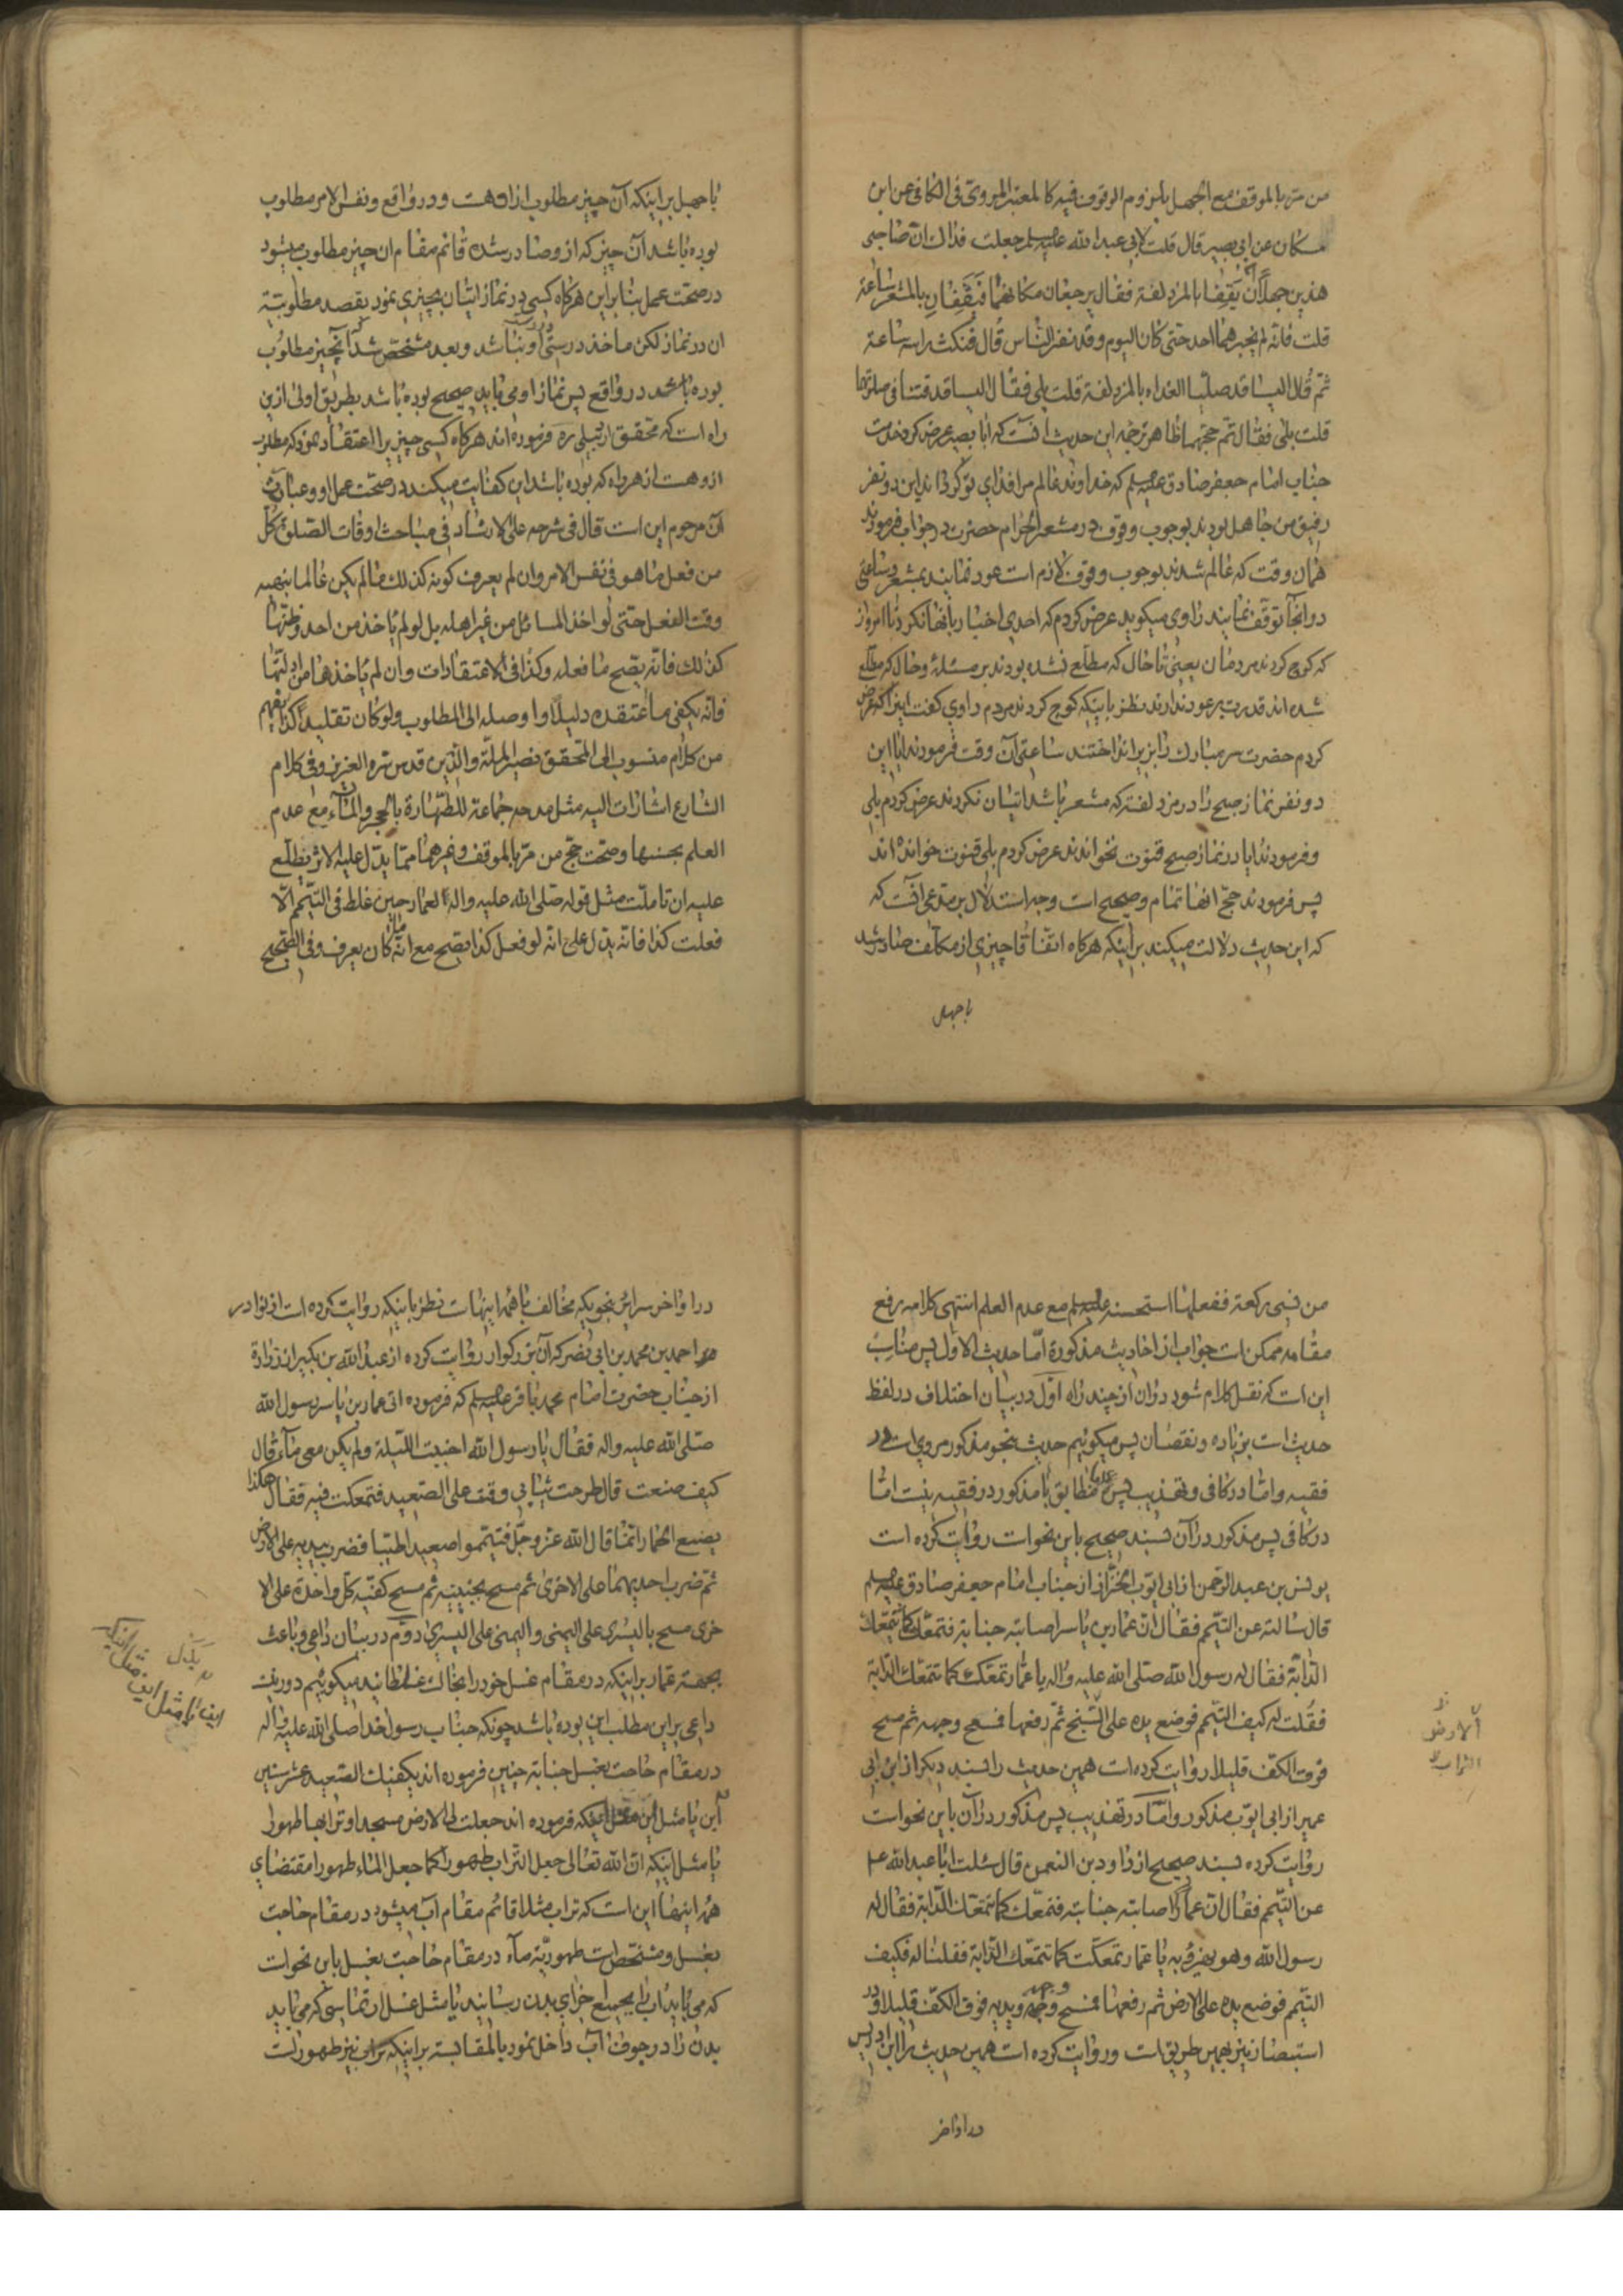 من مرّ بالموقف مع الجهل بلزوم الوقوف فیه کالمعتبر المروی فی الکافی عن ابن
مسکان عن ابی بصیر قال قلت لابی عبد الله علیه السلم جعلت فداک ان صاحبی
هذین جهلا ان یقفا بالمزدلفة فقال یرجعان مکانهما فیقفان بالمشعر ساعة
قلت فانه لم یخبرهما احد حتی کان الیوم و قد نفر الناس قال فنکث راسه ساعة
ثم قال الیسا قد صلیا الغداه بالمزدلفة قلت بلی فقال الیسا قد قنتا فی صلوتهما
قلت بلی فقال تم حجهما ظاهر ترجمه این حدیث آنست که ابا بصیر عرض کرد خدمت
جناب امام جعفر صادق علیه السلم که خداوند عالم مرا فدای تو گرداند این دو نفر
رفیق من جاهل بودند بوجوب وقوف در مشعر الحرام حضرت در جواب فرمودند
همان وقت که عالم شدند بوجوب وقوف لازم است عود نمایند بمشعر و ساعتی
در انجا توقف نمایند راوی میگوید عرض کردم که احدی اخبار بانها نکرد تا امروز
که کوچ کردند مردمان یعنی تا حال که مطلع نشده بودند بر مسئله و حال که مطلع
شده اند قدرت بر عود ندارند نظر باینکه کوچ کردند مردم راوی گفت اینرا که عرض
کردم حضرت سر مبارک را بزیر انداختند ساعتی آن وقت فرمودند ایا این
دو نفر نماز صبح را در مزدلفه که مشعر باشد اتیان نکردند عرض کردم بلی
و فرمودند ایا در نماز صبح قنوت نخواندند عرض کردم بلی قنوت خوانده اند
پس فرمودند حج انها تمام و صحیح است وجه استدلال بر مدعی آنست که
که این حدیث دلالت میکند بر اینکه هرکاه اتفاقا چیزی از مکلف صادر شد
با جهل
با جهل بر اینکه آن چیز مطلوب از او هست و در واقع و نفس الامر مطلوب
بوده باشد آن چیز که از و صادر شده قائم مقام ان چیز مطلوب میشود
در صحت عمل بنا بر این هرکاه کسی در نماز اتیان بچیزی نمود بقصد مطلوبیة
ان در نماز لکن ماخذ درستی او نباشد و بعد مشخص شد که آنچیز مطلوب
بوده باشد در واقع پس نماز او می باید صحیح بوده باشد بطریق اولی از این
راه است که محقق اردبیلی ره فرموده اند هرکاه کسی چیزیرا اعتقاد نمود که مطلوب
از و هست از هر راه که بوده باشد این کفایت میکند در صحت عمل او و عبارت
آن مرحوم این است قال فی شرحه علی الارشاد فی مباحث اوقات الصلوة کل
من فعل ما هو فی نفس الامر و ان لم یعرف کونه کذلک ما لم یکن عالما بنهیه
وقت الفعل حتی لو اخذ المسائل من غیر اهله بل لو لم یاخذ من احد و ظنّها
کذلک فانه یصح ما فعله و کذا فی الاعتقادات و ان لم یاخذها من ادلتها
فانه یکفی ما اعتقده دلیلا و اوصله الی المطلوب و لو کان تقلیدا کذا یفهم
من کلام منسوب الی المحقق نصیر الملّة و الدین قدس سره العزیز و فی کلام
الشارع اشارات الیه مثل مدحه جماعة للطهارة بالحجر و المآء مع عدم
العلم بحسنها و صحت حج من مر بالموقف و غیرهما مما یدل علیه الاثر یطلع
علیه ان تاملت مثل قوله صلی الله علیه و اله لعمار حین غلط فی التیمم الا
فعلت کذا فانه یدل علی انه لو فعل کذا یصح مع انه ما کان یعرف و فی الصحیح
من نسی رکعة ففعلها استحسنه علیه السلم مع عدم العلم انتهی کلامه رفع
مقامه ممکن است جواب از احادیث مذکورة امّا حدیث الاول پس مناسب
این است که نقل کلام شود در ان از چند راه اوّل در بیان اختلاف در لفظ
حدیث است بزیاده و نقصان پس میکوئیم حدیث بنحو مذکور مروی است در
فقیه و امّا در کافی و تهذیب پس مطابق با مذکور در فقیه نیست امّا
در کافی پس مذکور در آن بسند صحیح باین نحو است روایت کرده است
یونس بن عبد الرحمن از ابی ایّوب الخزّاز از جناب امام جعفر صادق علیه السلم
قال سالته عن التیمم فقال ان عمار بن یاسر اصابته جنابة فتمعّک کما تتمعّک
الدابّة فقال له رسول الله صلی الله علیه و اله یا عمّار تمعّکت کما تتمعّک الدّابة
فقلت له کیف التیمم فوضع یده علی المسح ثم رفعها فمسح وجهه ثم مسح
فوق الکف قلیلا روایت کرده است همین حدیث را بسند دیکر از ابن ابی
عمیر از ابی ایّوب مذکور و امّا در تهذیب پس مذکور در آن باین نحو است
روایت کرده بسند صحیح از داود بن النعمن قال سئلت ابا عبد الله ع
عن التیمم فقال ان عمارا اصابته جنابة فتمعّک کما تتمعّک الدابّة فقال له
رسول الله و هو یهزؤ به یا عمار تمعّکت کما تتمعّک الدّابة فقلنا له فکیف
التیمم فوضع یده علی الارض ثم رفعها فمسح وجهه و یدیه فوق الکفّ قلیلا و در
استبصار نیز بهمین طریق است و روایت کرده است همین حدیث را ابن ادریس
الارض
التراب
در اواخر
در اواخر سرایر بنحویکه مخالف با همه اینهاست نظر باینکه روایت کرده است از نوادر
احمد بن محمد بن ابی نصر که آن بزرکوار روایت کرده از عبد الله بن بکیر از زرارة
از جناب حضرت امام محمد باقر علیه السلم که فرموده اتی عمار بن یاسر رسول الله
صلی الله علیه و اله فقال یا رسول الله اجنبت اللیلة و لم یکن معی مآء قال
کیف صنعت قال طرحت ثیابی و قمت علی الصعید فتمعکت فیه فقال هکذا
یصنع الحمار انما قال الله عز و جل فتیمّموا صعیدا طیّبا فضرب بیدیه علی الارض
ثم ضرب احدیهما علی الاخری ثم مسح بجبینیه ثم مسح کفّیه کل واحدة علی الا
خری مسح بالیسری علی الیمنی و الیمنی علی الیسری دوّم در بیان داعی و باعث
بجهة عمار بر اینکه در مقام غسل خود را بخاک غلطانید میکوئیم دور نیست
داعی بر این مطلب این بوده باشد چونکه جناب رسول خدا صلی الله علیه و اله
در مقام حاجت بغسل جنابة چنین فرموده اند یکفیک الصعید عشر سنین
این یا مثل اینکه فرموده اند جعلت لی الارض مسجدا و ترابها طهورا
یا مثل اینکه ان الله تعالی جعل التراب طهورا کما جعل الماء طهورا مقتضای
همه اینها این است که تراب مثلا قائم مقام آب میشود در مقام حاجت
بغسل و مشخص است طهوریّة مآء در مقام حاجت بغسل باین نحو است
که می باید اب را بجمیع اجزای بدن رسانید یا مثل غسل ارتماسی که می باید
بدن را در جوف آب داخل نمود بالمقایسة بر اینکه تراب نیز طهور است